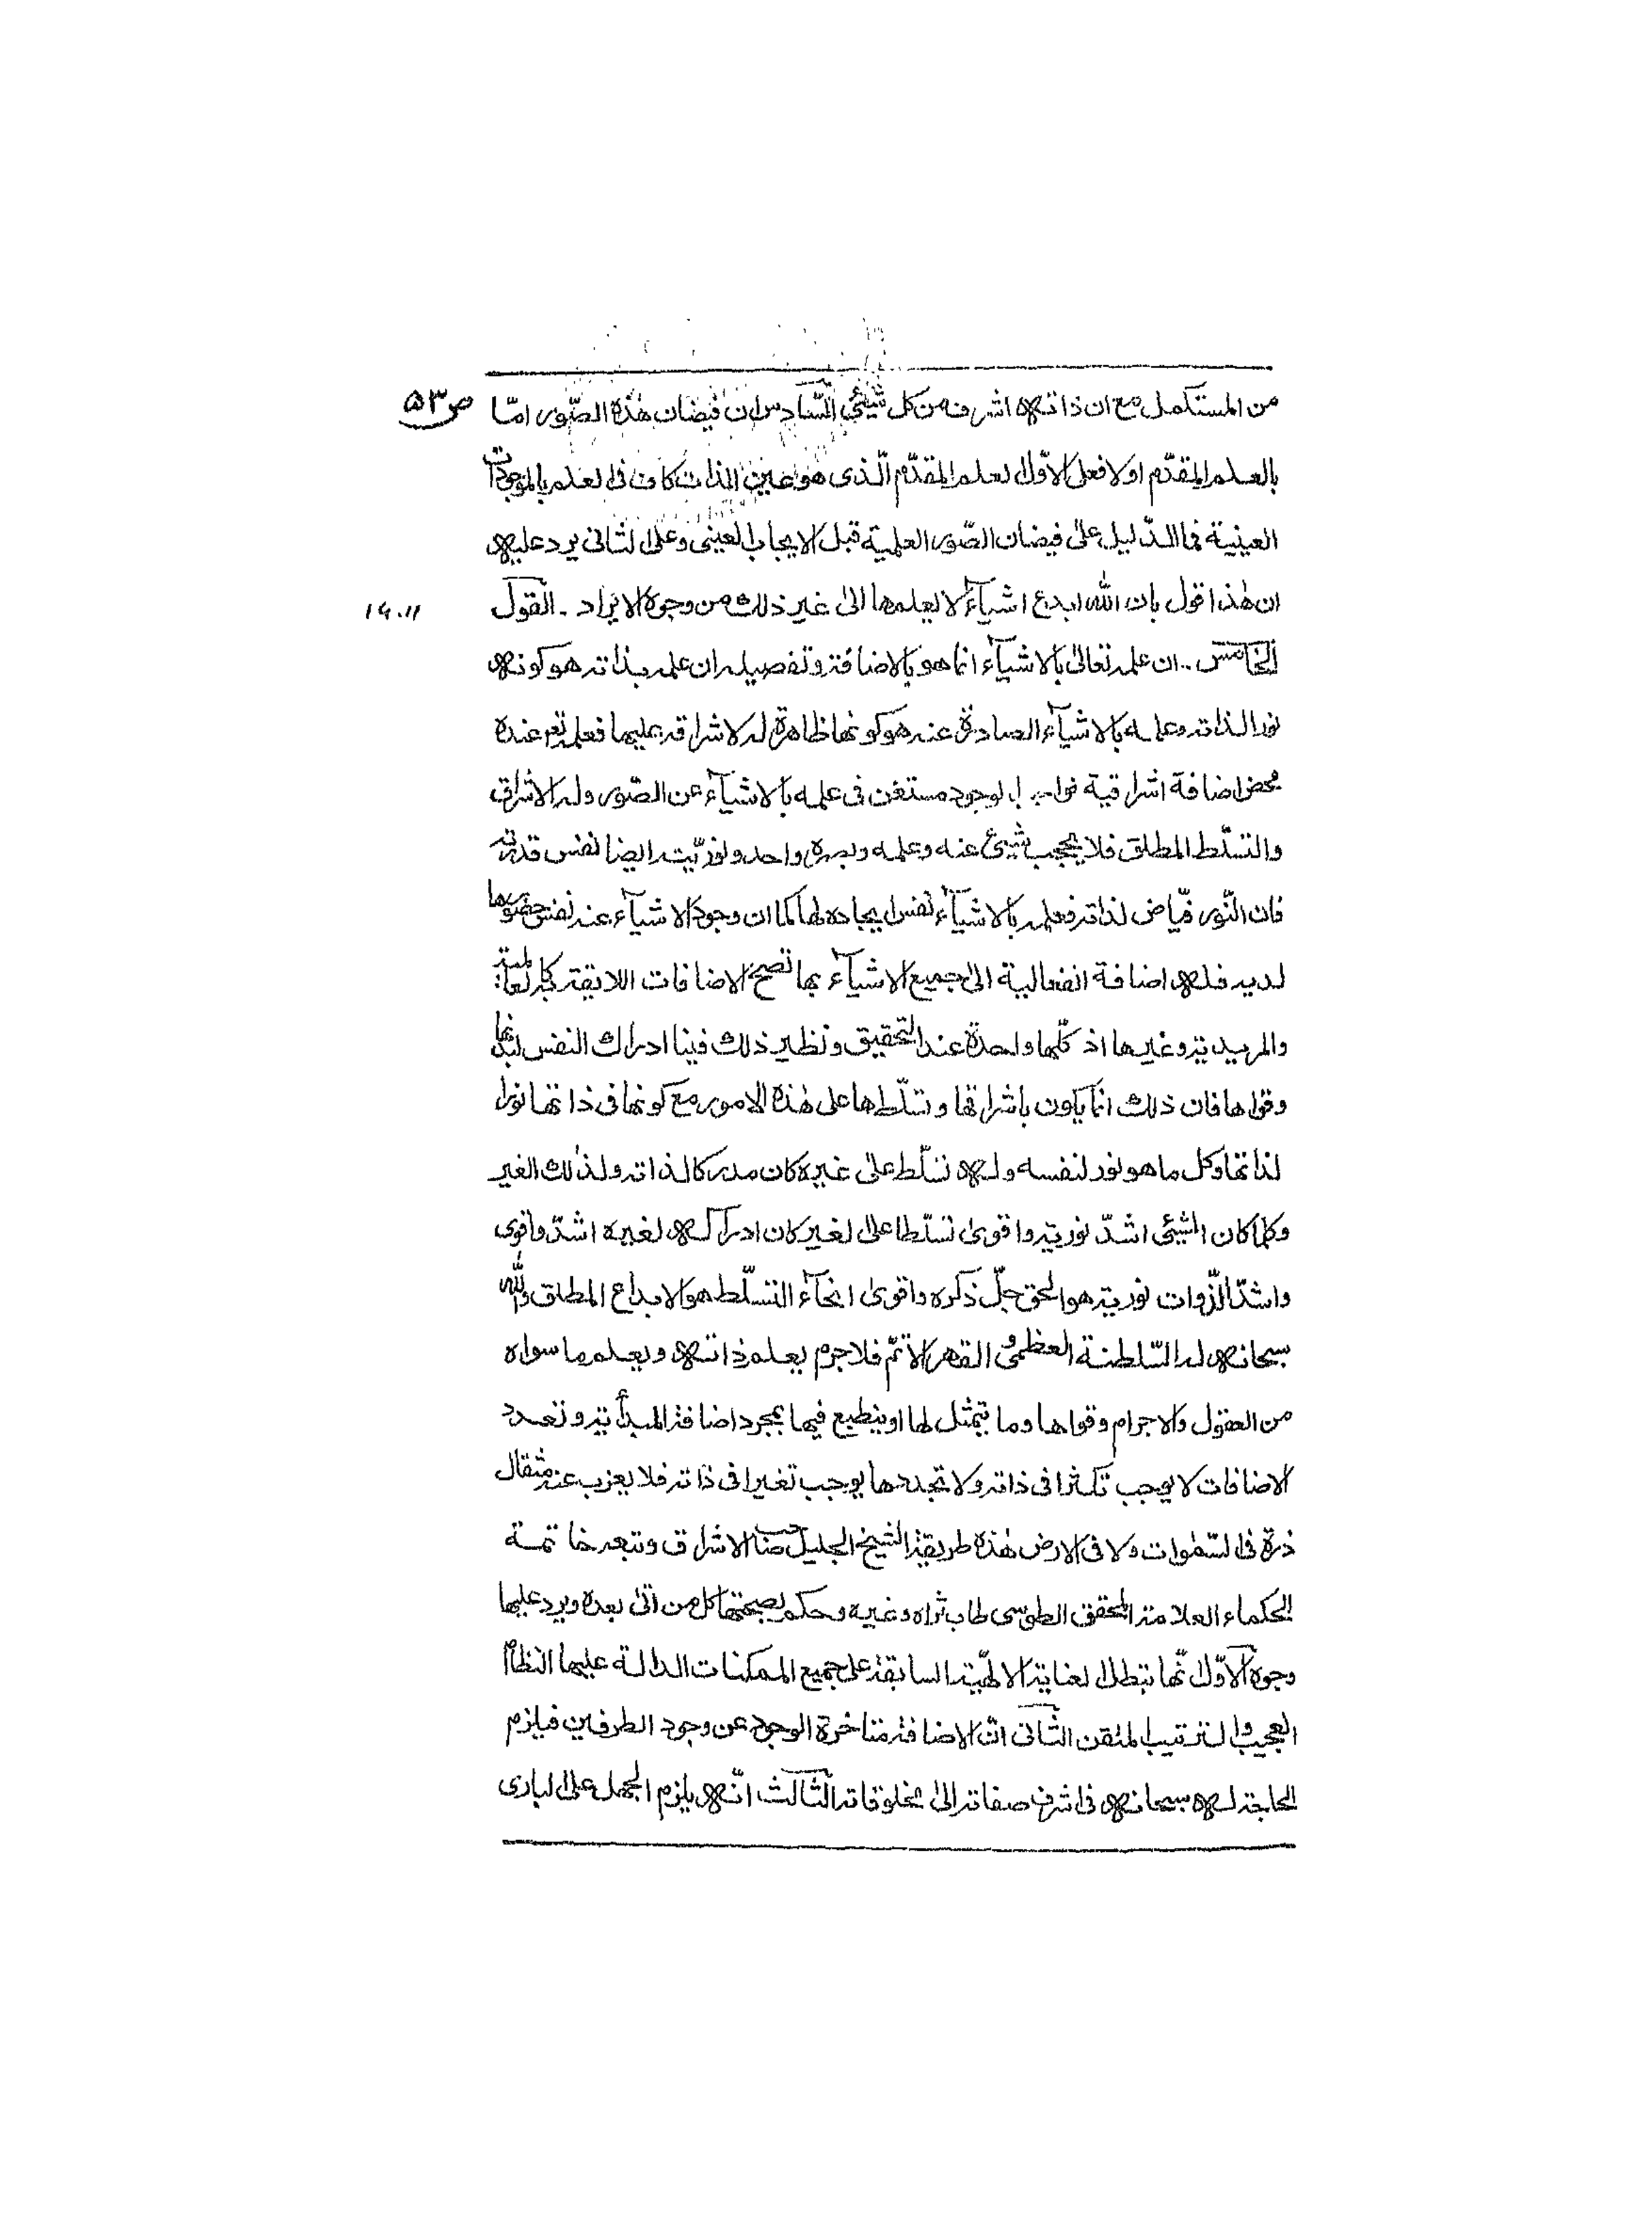 ص ٥٣
من المستكمل مع ان ذاته اشرف من كل شيئى السّادس ان فيضان هٰذه الصّور امّا
بالعلم المقدّم اولا فعلى الاوّل العلم المقدّم الّذى هو عين الذات كاف فى العلم بالموجودات
العينية فما الدّليل علىٰ فيضان الصّور العلمية قبل الايجاب العينى وعلى الثانى يرد عليه
ان هٰذا قول بان الله ابدع اشيآء لا يعلمها الىٰ غير ذلك من وجوه الايراد . القول
١٤.١١
الخامس .. ان علمه تعالىٰ بالاشيآء انما هو بالاضافة وتفصيله ان علمه بذاته هو كونه
نورا لذاته وعلمه بالاشيآء الصادرة عنه هو كونها ظاهرة له لاشراقه عليها فعلمه تعه عنده
محض اضافة اشراقية فواجب الوجود مستغن فى علمه بالاشيآء عن الصّور وله الاشراق
والتسلّط المطلق فلا يحجبه شيئ عنه وعلمه وبصره واحد ونوريّته ايضا نفس قدرته
فان النّور فيّاض لذاته فعلمه بالاشيآء نفس ايجاده لها كما ان وجود الاشيآء عنه نفس حضورها
لديه فله اضافة الفعالية الىٰ جميع الاشيآء بها تصحّ الاضافات اللايقة به كالعالمية
والمريدية وغيرها اذ كلّها واحدة عند التحقيق ونظير ذلك فينا ادراك النفس لبدنها
وقواها فان ذلك انما يكون باشراقها وتسلّطها على هٰذه الامور مع كونها فى ذاتها نورا
لذاتها وكل ما هو نور لنفسه وله تسلّط علىٰ غيره كان مدركا لذاته ولذٰلك الغير
وكلما كان الشيئى اشدّ نورية واقوىٰ تسلّطا على الغير كان ادراكه لغيره اشدّ واقوى
واشدّ الذّوات نورية هو الحق جلّ ذكره واقوىٰ انحآء التسلّط هو الابداع المطلق والله
سبحانه له السّلطنة العظمىٰ و القهر الاتمّ فلا جرم يعلم ذاته ويعلم ما سواه
من العقول والاجرام وقواها وما يتمثل لها او ينطبع فيها بمجرد اضافة المبدأية وتعدد
الاضافات لا يوجب تكثرا فى ذاته ولا تجددها يوجب تغيرا فى ذاته فلا يعزب عنه مثقال
ذرة فى السّمٰوات ولا فى الارض هٰذه طريقة الشيخ الجليل صاحب الاشراق وتبعه خاتمة
الحكماء العلامة المحقق الطوسى طاب ثراه وغيره وحكم بصحتها كل من اتىٰ بعده ويرد عليها
وجوه الاوّل انّها تبطل العناية الالٰهيّة السابقة على جميع الممكنات الدالة عليها النظام
العجيب و الترتيب المتقن الثانى انّ الاضافة متاخرة الوجود عن وجود الطرفين فيلزم
الحاجة له سبحانه فى اشرف صفاته الىٰ مخلوقاته الثالث انّه يلزم الجهل على البارى